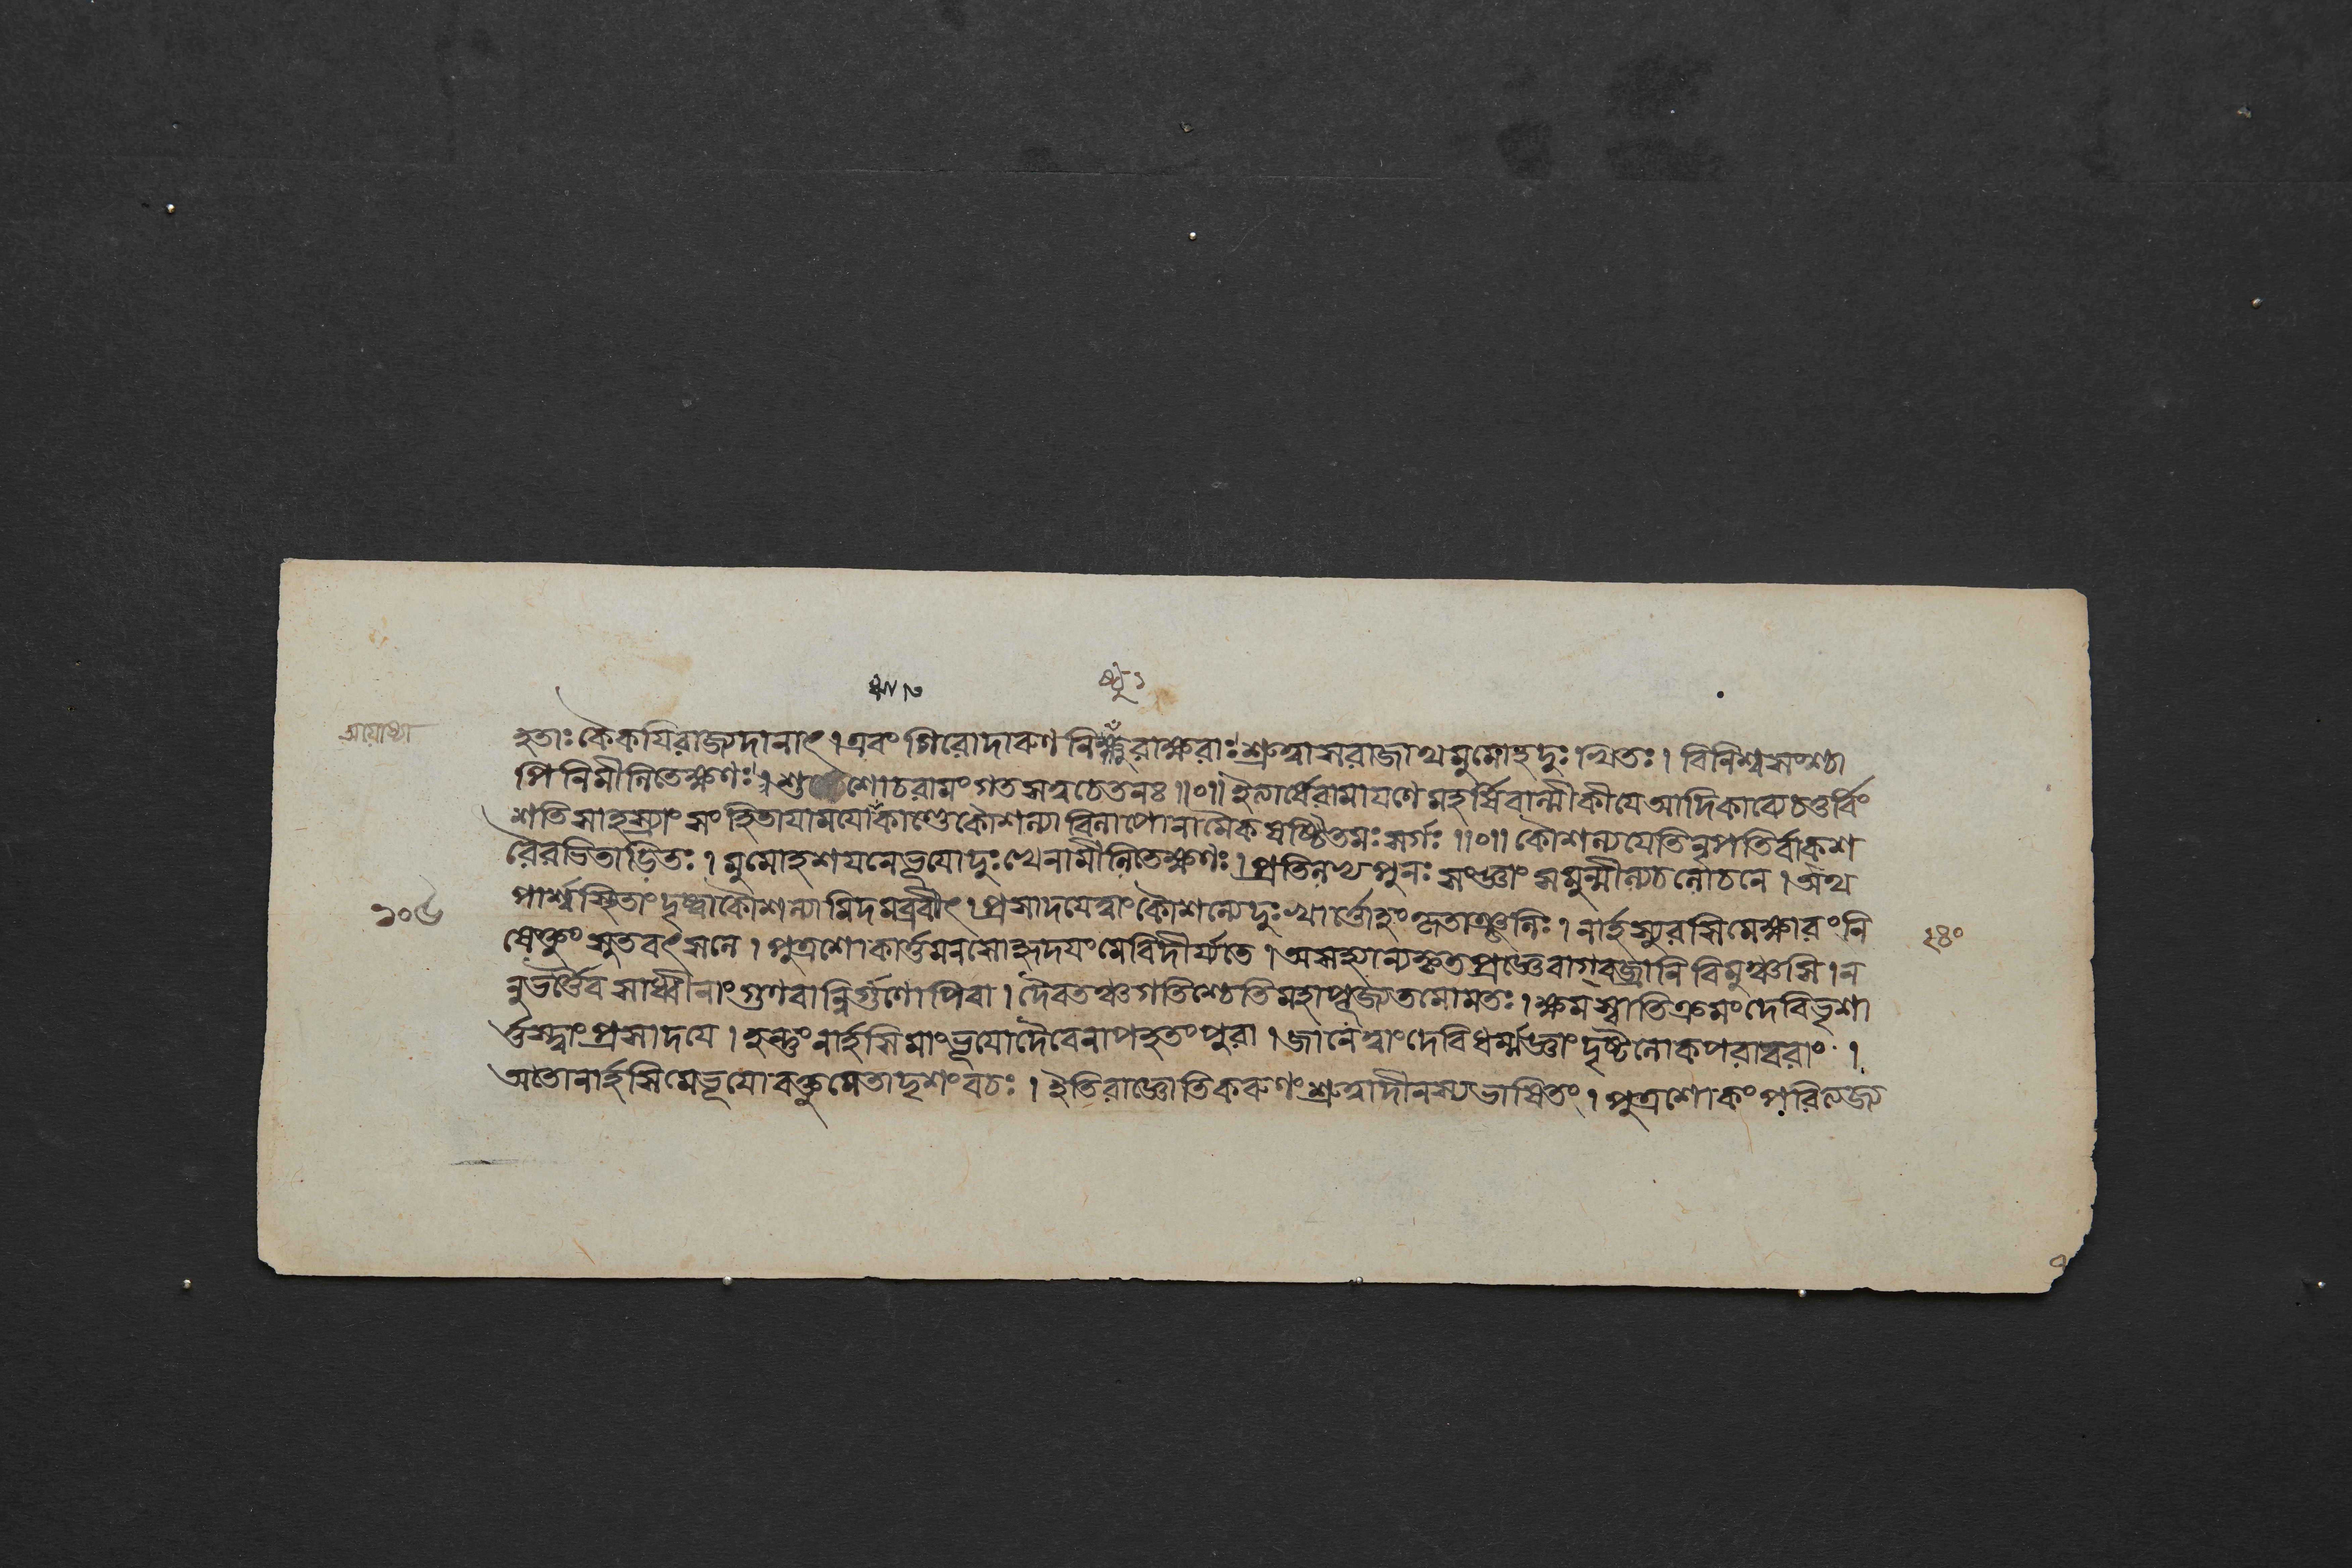 হতাঃ কৈকযিরাজ্যদানাৎ । এবং গিরোদারুণ নিষ্ঠুরাক্ষরাঃ শ্রুত্বা স রাজাথ মুমোহ দুঃখিতঃ । বিনিশ্বসংশ্চা
পি নিমীলিতেক্ষণঃ । শুশোচ রামং গতসত্বচেতনঃ ॥০॥ ইত্যার্ষে রামাযণে মহর্ষিবাল্মীকীযে আদিকাব্যে চতুর্বিং
শতিসাহস্র্যাং সংহিতাযামযোকাণ্ডে কৌশল্যা বিলাপো নামৈকষষ্টিতমঃ সর্গঃ ॥০॥ কৌশল্যযেতি নৃপতির্বাক্শ
রৈরভিতাড়িতঃ । মুমোহ শযনে ভূযো দুঃখেনামীলিতেক্ষণঃ । প্রতিলভ্য পুনঃ সংজ্ঞাং সমুন্মীল্য চ লোচনে । অথ
পার্শ্বস্থিতাং দৃষ্ট্বা কৌশল্যামিদমব্রবীৎ । প্রসাদযে ত্বাং কৌশল্যে দুঃখার্ত্তোহং কৃতাঞ্জলিঃ । নার্হস্যুরসি মে ক্ষারং নি
ষেক্তুং সুতবৎসলে । পুত্রশোকার্ত্তমনসো হৃদযং মে বিদীর্য্যতে । অসহ্যান্যকৃতপ্রজ্ঞে বাগ্বজ্রানি বিমুঞ্চসি । ন
নু ভর্ত্তৈব সাধ্বীনাং গুণবান্নির্গুণোপি বা । দৈবতঞ্চ গতিশ্চেতি মহাপূজ্যতমো মতঃ । ক্ষমস্বাতিক্রমং দেবি ভৃশা
র্ত্তস্ত্বাং প্রসাদযে । হন্তুং নার্হসি মাং ভূযো দৈবেনাপহতং পুরা । জানে ত্বাং দেবি ধর্ম্মজ্ঞাং দৃষ্টলোকপরাবরাং ।
অতো নার্হসি মে ভূযো বক্তুমেতাদৃশং বচঃ । ইতি রাজ্ঞোতিকরুণং শ্রুত্বা দীনস্য ভাষিতং । পুত্রশোকং পরিত্যজ্য
১০৬
২৪০